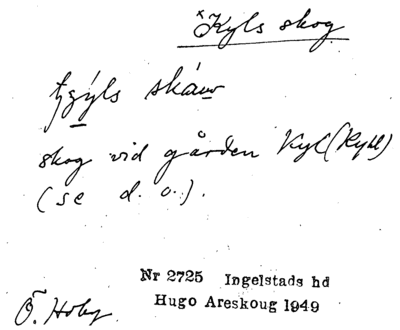 ×Kyls skog
skog vid gården Kyl (Kyhl)
(se d. o.).
Nr 2725 Ingelstads hd
Hugo Areskoug 1949
Ö. Hoby